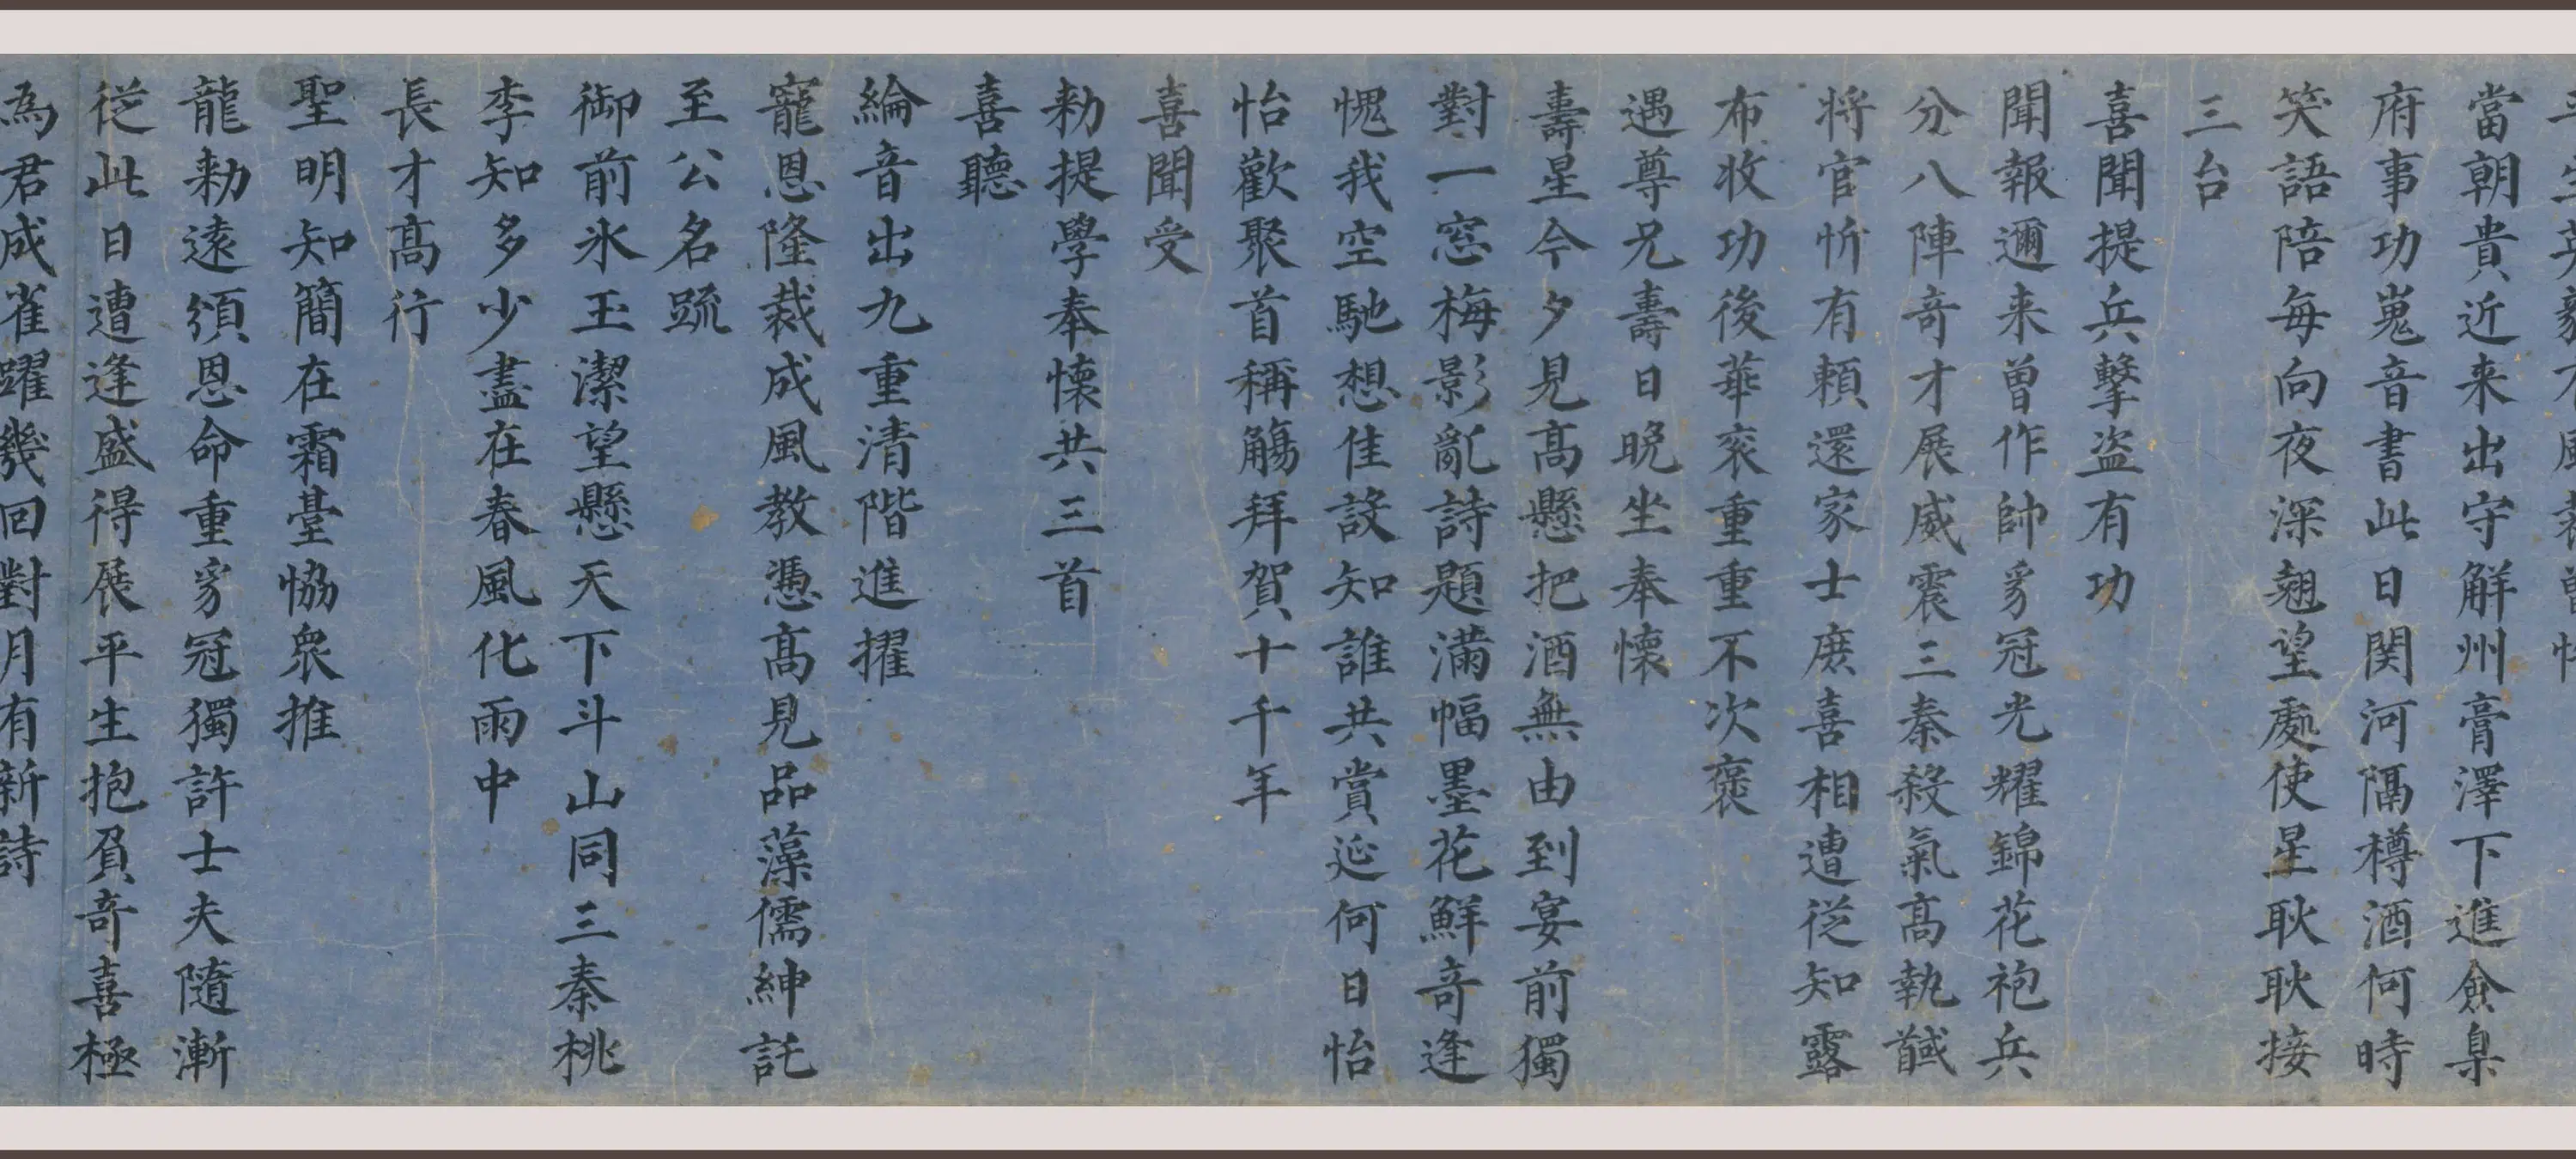 當朝貴近来出守解州膏澤下進僉臬
府事功嵬音書此日関河隔樽酒何時
笑語陪每向夜深翹望處使星耿耿接
三台
喜聞提兵擊盗有功
聞報邇来曾作帥豸冠光耀錦花袍兵
分八陣奇才展威震三秦殺氣髙執馘
将官忻有賴還家士庶喜相遭從知露
布收功後華衮重重不次褒
遇尊兄壽日晩坐奉懷
壽星今夕見髙懸把酒無由到宴前獨
對一窓梅影亂詩題滿幅墨花鮮奇逢
愧我空馳想佳設知誰共賞延何日怡
怡歡聚首稱觴拜賀十千年
喜聞受
勑提學奉懷共三首
喜聽
綸音出九重清階進擢
寵恩隆裁成風教憑髙見品藻儒紳託
至公名䟽
御前氷玉潔望懸天下斗山同三秦桃
李知多少盡在春風化雨中
長才髙行
聖明知簡在霜臺恊衆推
龍勑遠頒恩命重豸冠獨許士夫隨漸
從此日遭逢盛得展平生抱負奇喜極
為君成雀躍幾回對月有新詩